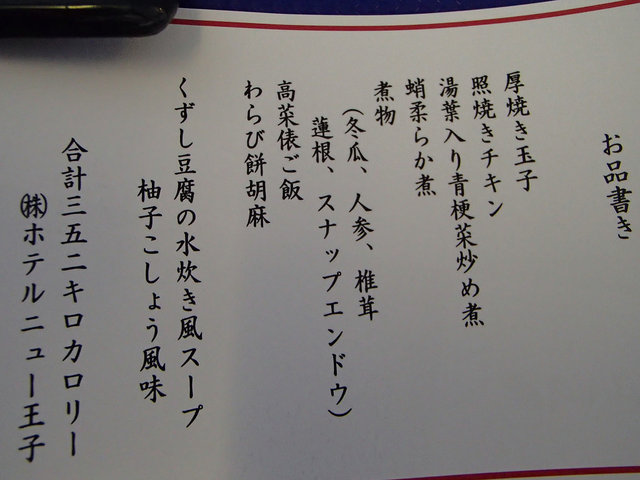 お品書き
厚焼き玉子
照焼きチキン
湯葉入り青梗菜炒め煮
蛸柔らか煮
煮物
(冬瓜、人参、椎茸
蓮根、スナップエンドウ)
高菜俵ご飯
わらび餅胡麻
くずし豆腐の水炊き風スープ
柚子こしょう風味
合計三五二キロカロリー
㈱ホテルニュー王子